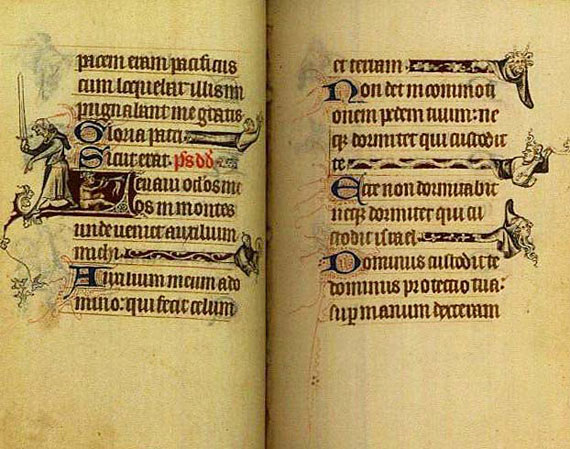 pacem eram pacificus
cum loquebar illis im
pugnabant me gratis
Gloria patri
Sicut erat. ps dd
Levavi oculos me
os in montes
unde veniet auxilium
michi
Auxilium meum a do
mino: qui fecit celum
et terram.
Non det in commoti
onem pedem tuum: ne
q; dormitet qui custodit
te
Ecce non dormitabit
neq; dormiet qui cu
stodit israel
Dominus custodit te
dominus protectio tua:
sup manum dexteram